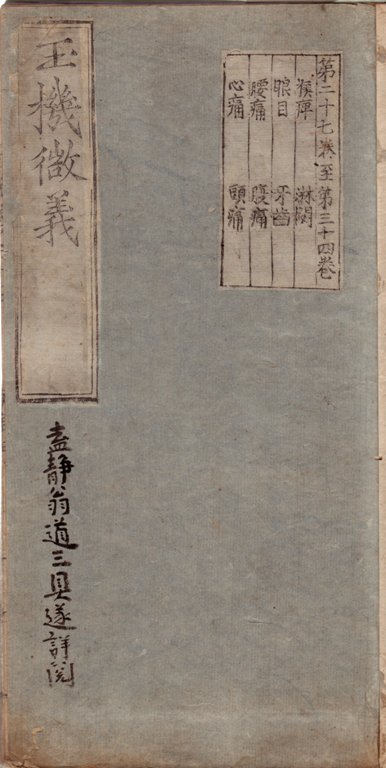 第二十七巻至第三十四巻
喉痺 淋閟
眼目 牙齒
腰痛 腹痛
心痛 頭痛
玉機微義
盍静翁道三具遂詳閲